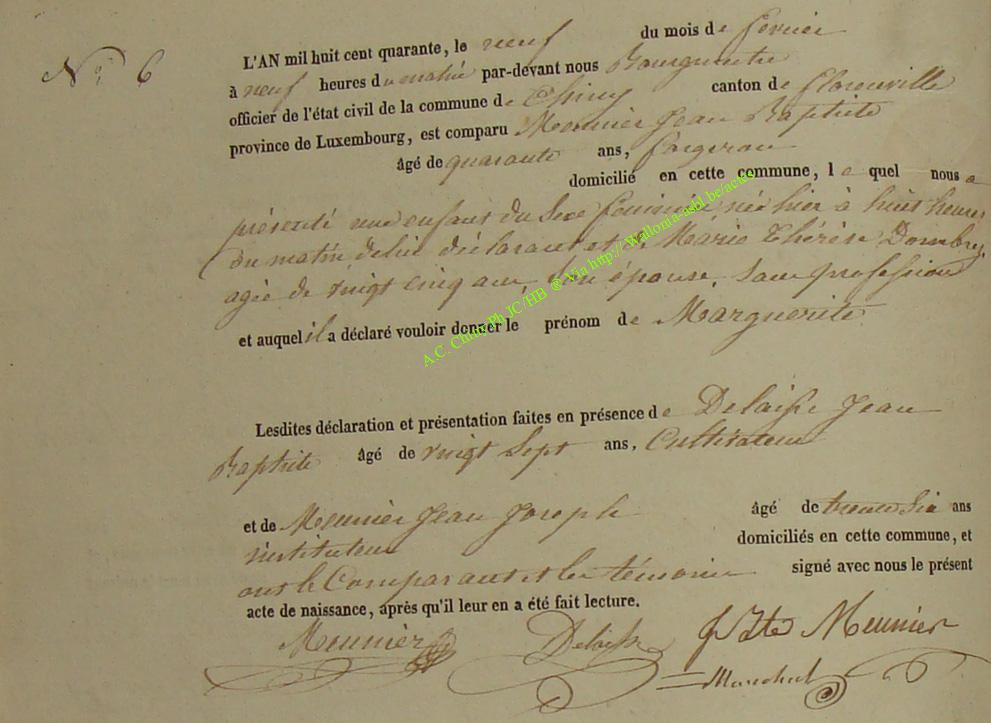 N.o 6
L'AN mil huit cent quarante, le neuf du mois de fevrier
à neuf heures du matin par-devant nous Bourgmestre
officier de l'état civil de la commune de Chiny canton de florenville
province de Luxembourg, est comparu Meunier Jean Baptiste
âgé de quarante ans, forgeron
domicilié en cette commune, le quel nous a
présenté une enfant du Sexe feminin, née hier à huit heures
du matin de lui déclarant et de Marie Thérèse Dombry,
agée de vingt cinq ans, Son épouse, Sans profession
et auquel il a déclaré vouloir donner le prénom de Marguerite
Lesdites déclaration et présentation faites en présence de Delaisse Jean
Baptiste âgé de vingt Sept ans, Cultivateur
et de Meunier Jean Joseph âgé de trente Six ans
instituteur domiciliés en cette commune, et
ont le Comparant et les témoins signé avec nous le présent
acte de naissance, après qu'il leur en a été fait lecture.
Meunier Delaisse J Bte Meunier
A.C. Chiny Ph JC/HB @ Via http://Wallonia-asbl.be/actes